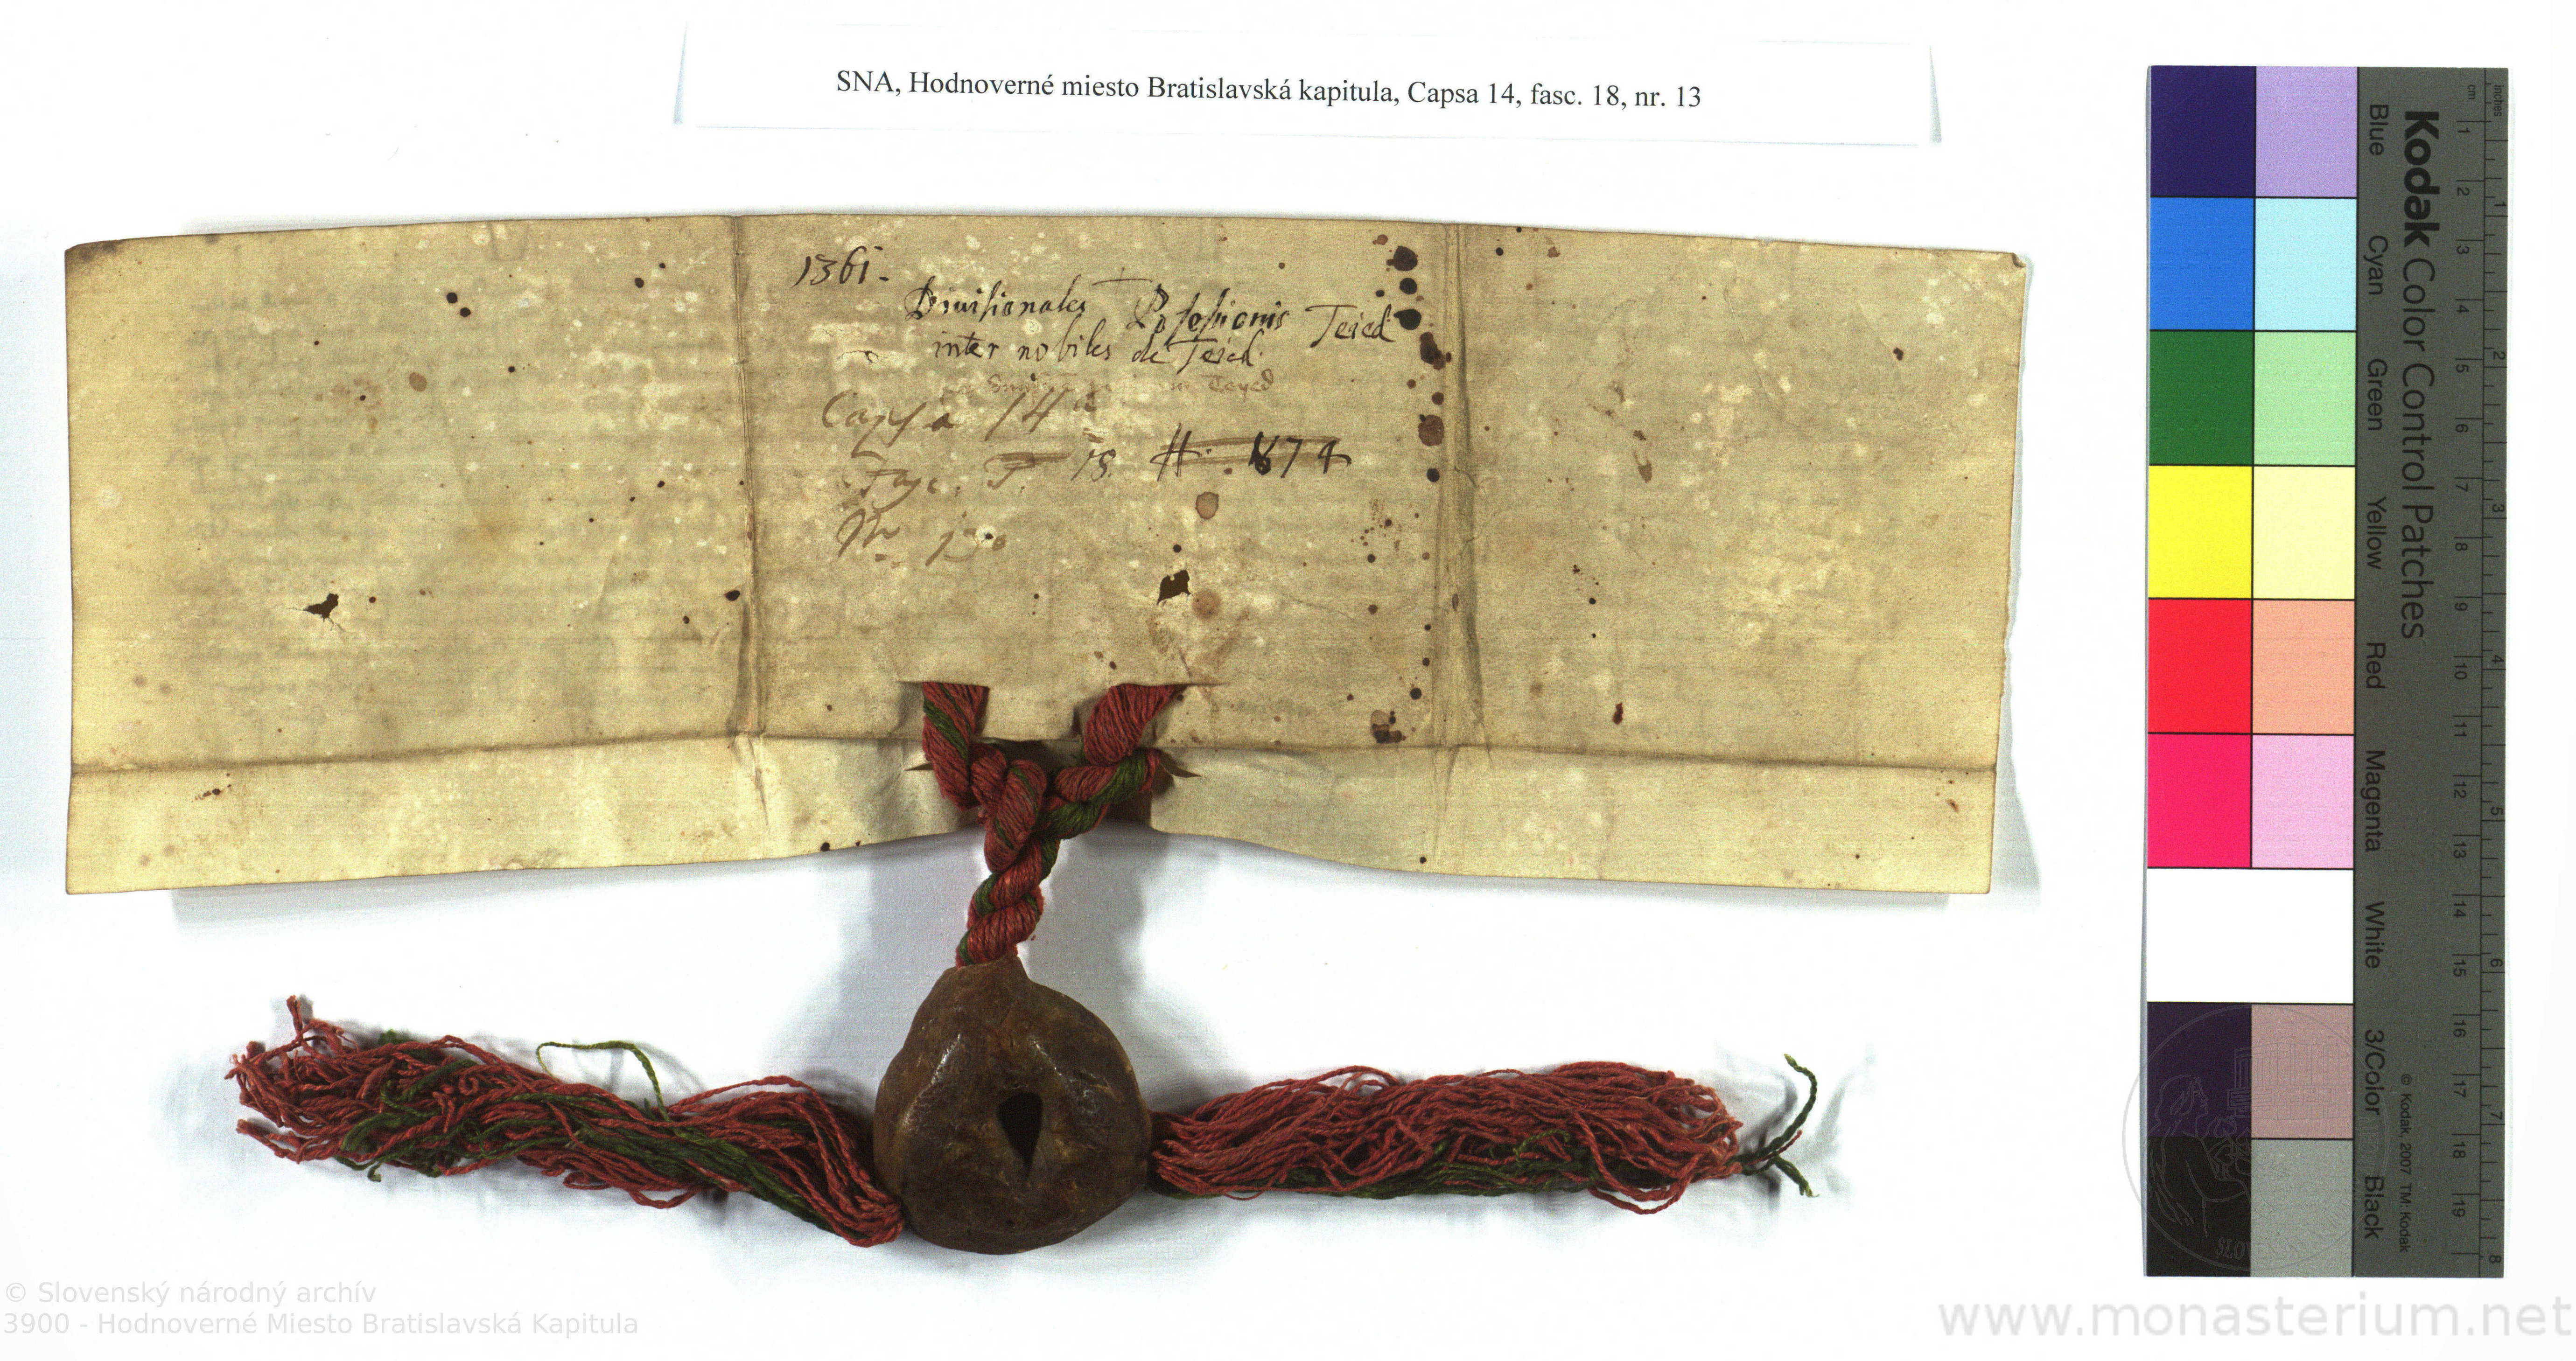 SNA, Hodnoverné miesto Bratislavská kapitula, Capsa 14, fasc. 18, nr. 13
1361.
Divisionales Possessionis Tejed
inter nobiles de Tejed
Teyed
Capsa 14a
Fasc. P. 18. #. 1674
Nro 13
© Slovenský národný archív
3900 - Hodnoverné Miesto Bratislavská Kapitula
www.monasterium.net
Kodak Color Control Patches
Blue Cyan Green Yellow Red Magenta White 3/Color Black
© Kodak, 2007 TM: Kodak
cm 1 2 3 4 5 6 7 8 9 10 11 12 13 14 15 16 17 18 19
inches 1 2 3 4 5 6 7 8